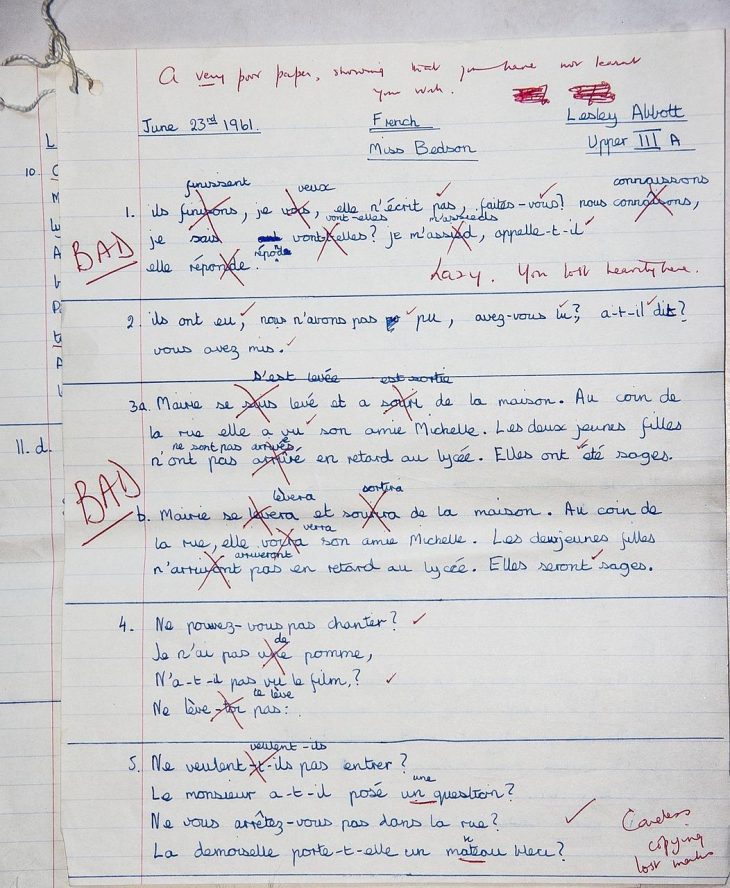 A very poor paper, showing that you have not learnt
your work.
June 23rd 1961. French Lesley Abbott
Miss Bedson Upper III A
finissent veux connaissons
1. ils finissons, je vous, elle n'écrit pas, faites-vous? nous connaisons,
vont-elles m'assieds
BAD je sais vont-elles? je m'assied, appelle-t-il
répond
elle réponde. Lazy. You lost heavily here.
2. ils ont eu, nous n'avons pas pu, avez-vous lu? a-t-il dit?
vous avez mis.
s'est levée est sortie
3a. Marie se suis levé et a souri de la maison. Au coin de
la rue elle a vu son amie Michelle. Les deux jeunes filles
ne sont pas arrivés
n'ont pas arrivé en retard au lycée. Elles ont été sages.
BAD
lèvera sortira
b. Marie se levera et de la maison. Au coin de
verra
la rue, elle voira son amie Michelle. Les deuxjeunes filles
arriveront
n'arrivont pas en retard au lycée. Elles seront sages.
4. Ne pouvez-vous pas chanter?
de
Je n'ai pas une pomme,
N'a-t-il pas vu le film,?
te lève
Ne lève-toi pas:
veulent-ils
5. Ne veulent-t-ils pas entrer?
une
Le monsieur a-t-il posé un question?
Ne vous arrêtez-vous pas dans la rue?
La demoiselle porte-t-elle un mateau bleu?
Careless
copying
lost marks
10.
11. d.